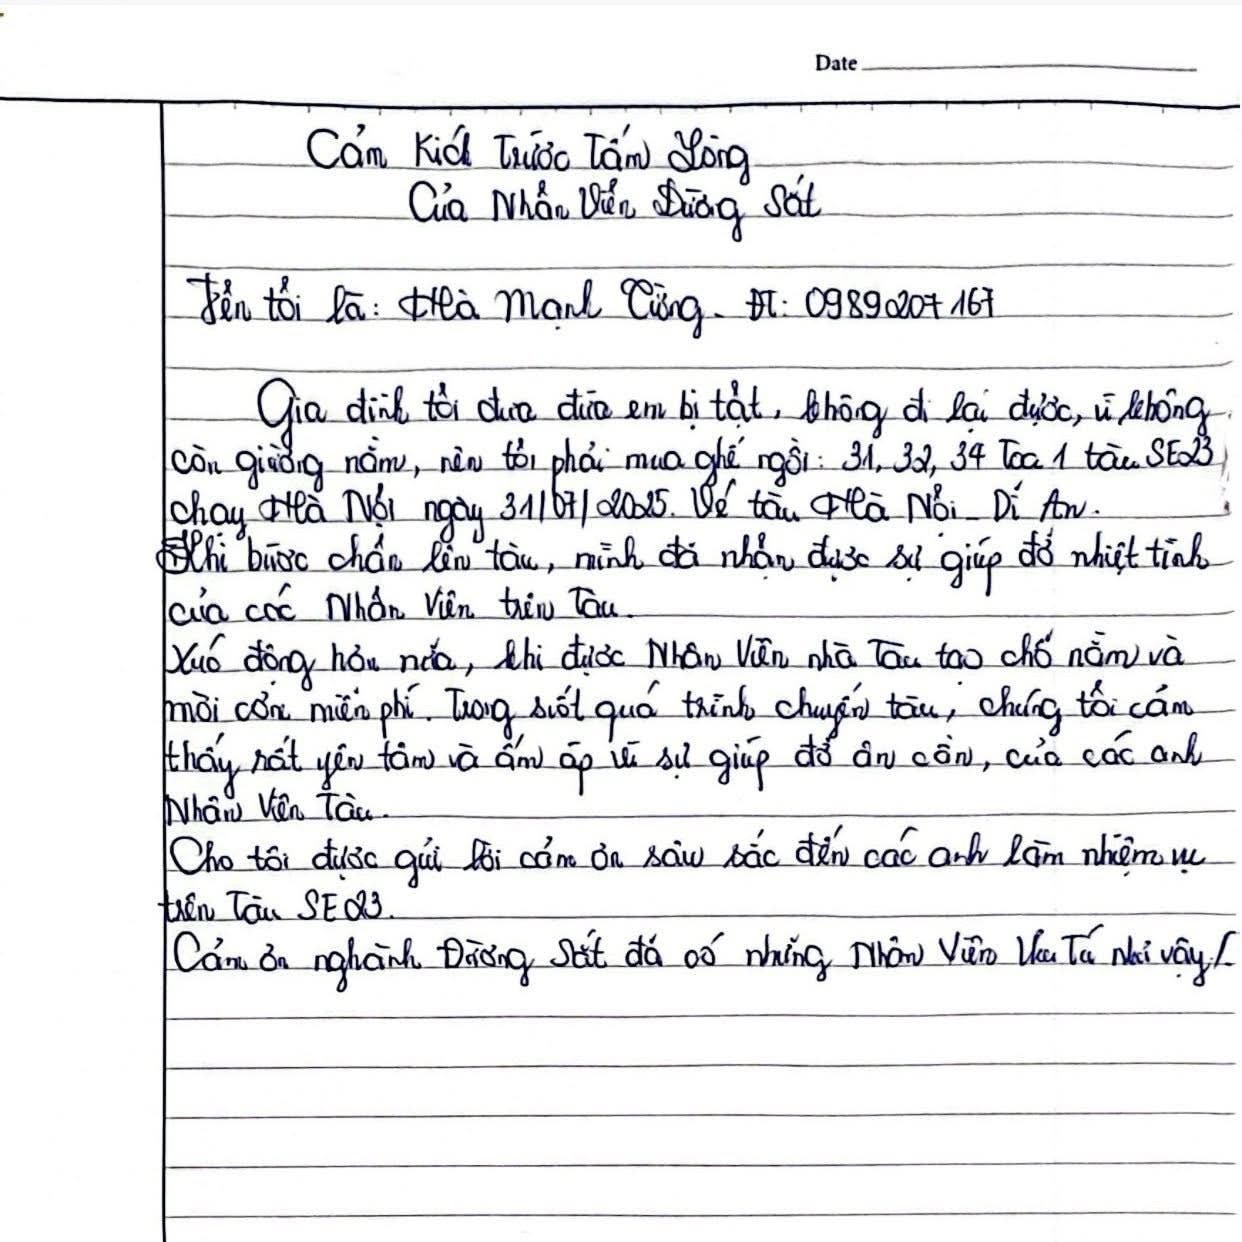 Date
Cảm Kích Trước Tấm Lòng
Của Nhân Viên Đường Sắt
Tên tôi là: Hà Mạnh Cường - ĐT: 0989207167
Gia đình tôi đưa đứa em bị tật, không đi lại được, vì không
còn giường nằm, nên tôi phải mua ghế ngồi: 31, 32, 34 Toa 1 tàu SE23
chạy Hà Nội ngày 31/07/2025. Vé tàu Hà Nội - Dĩ An.
Khi bước chân lên tàu, mình đã nhận được sự giúp đỡ nhiệt tình
của các Nhân Viên trên Tàu.
Xúc động hơn nữa, khi được Nhân Viên nhà Tàu tạo chỗ nằm và
mời cơm miễn phí. Trong suốt quá trình chuyến tàu, chúng tôi cảm
thấy rất yên tâm và ấm áp vì sự giúp đỡ ân cần, của các anh
Nhân Viên Tàu.
Cho tôi được gửi lời cảm ơn sâu sắc đến các anh làm nhiệm vụ
trên Tàu SE23.
Cảm ơn nghành Đường Sắt đã có những Nhân Viên Ưu Tú như vậy!